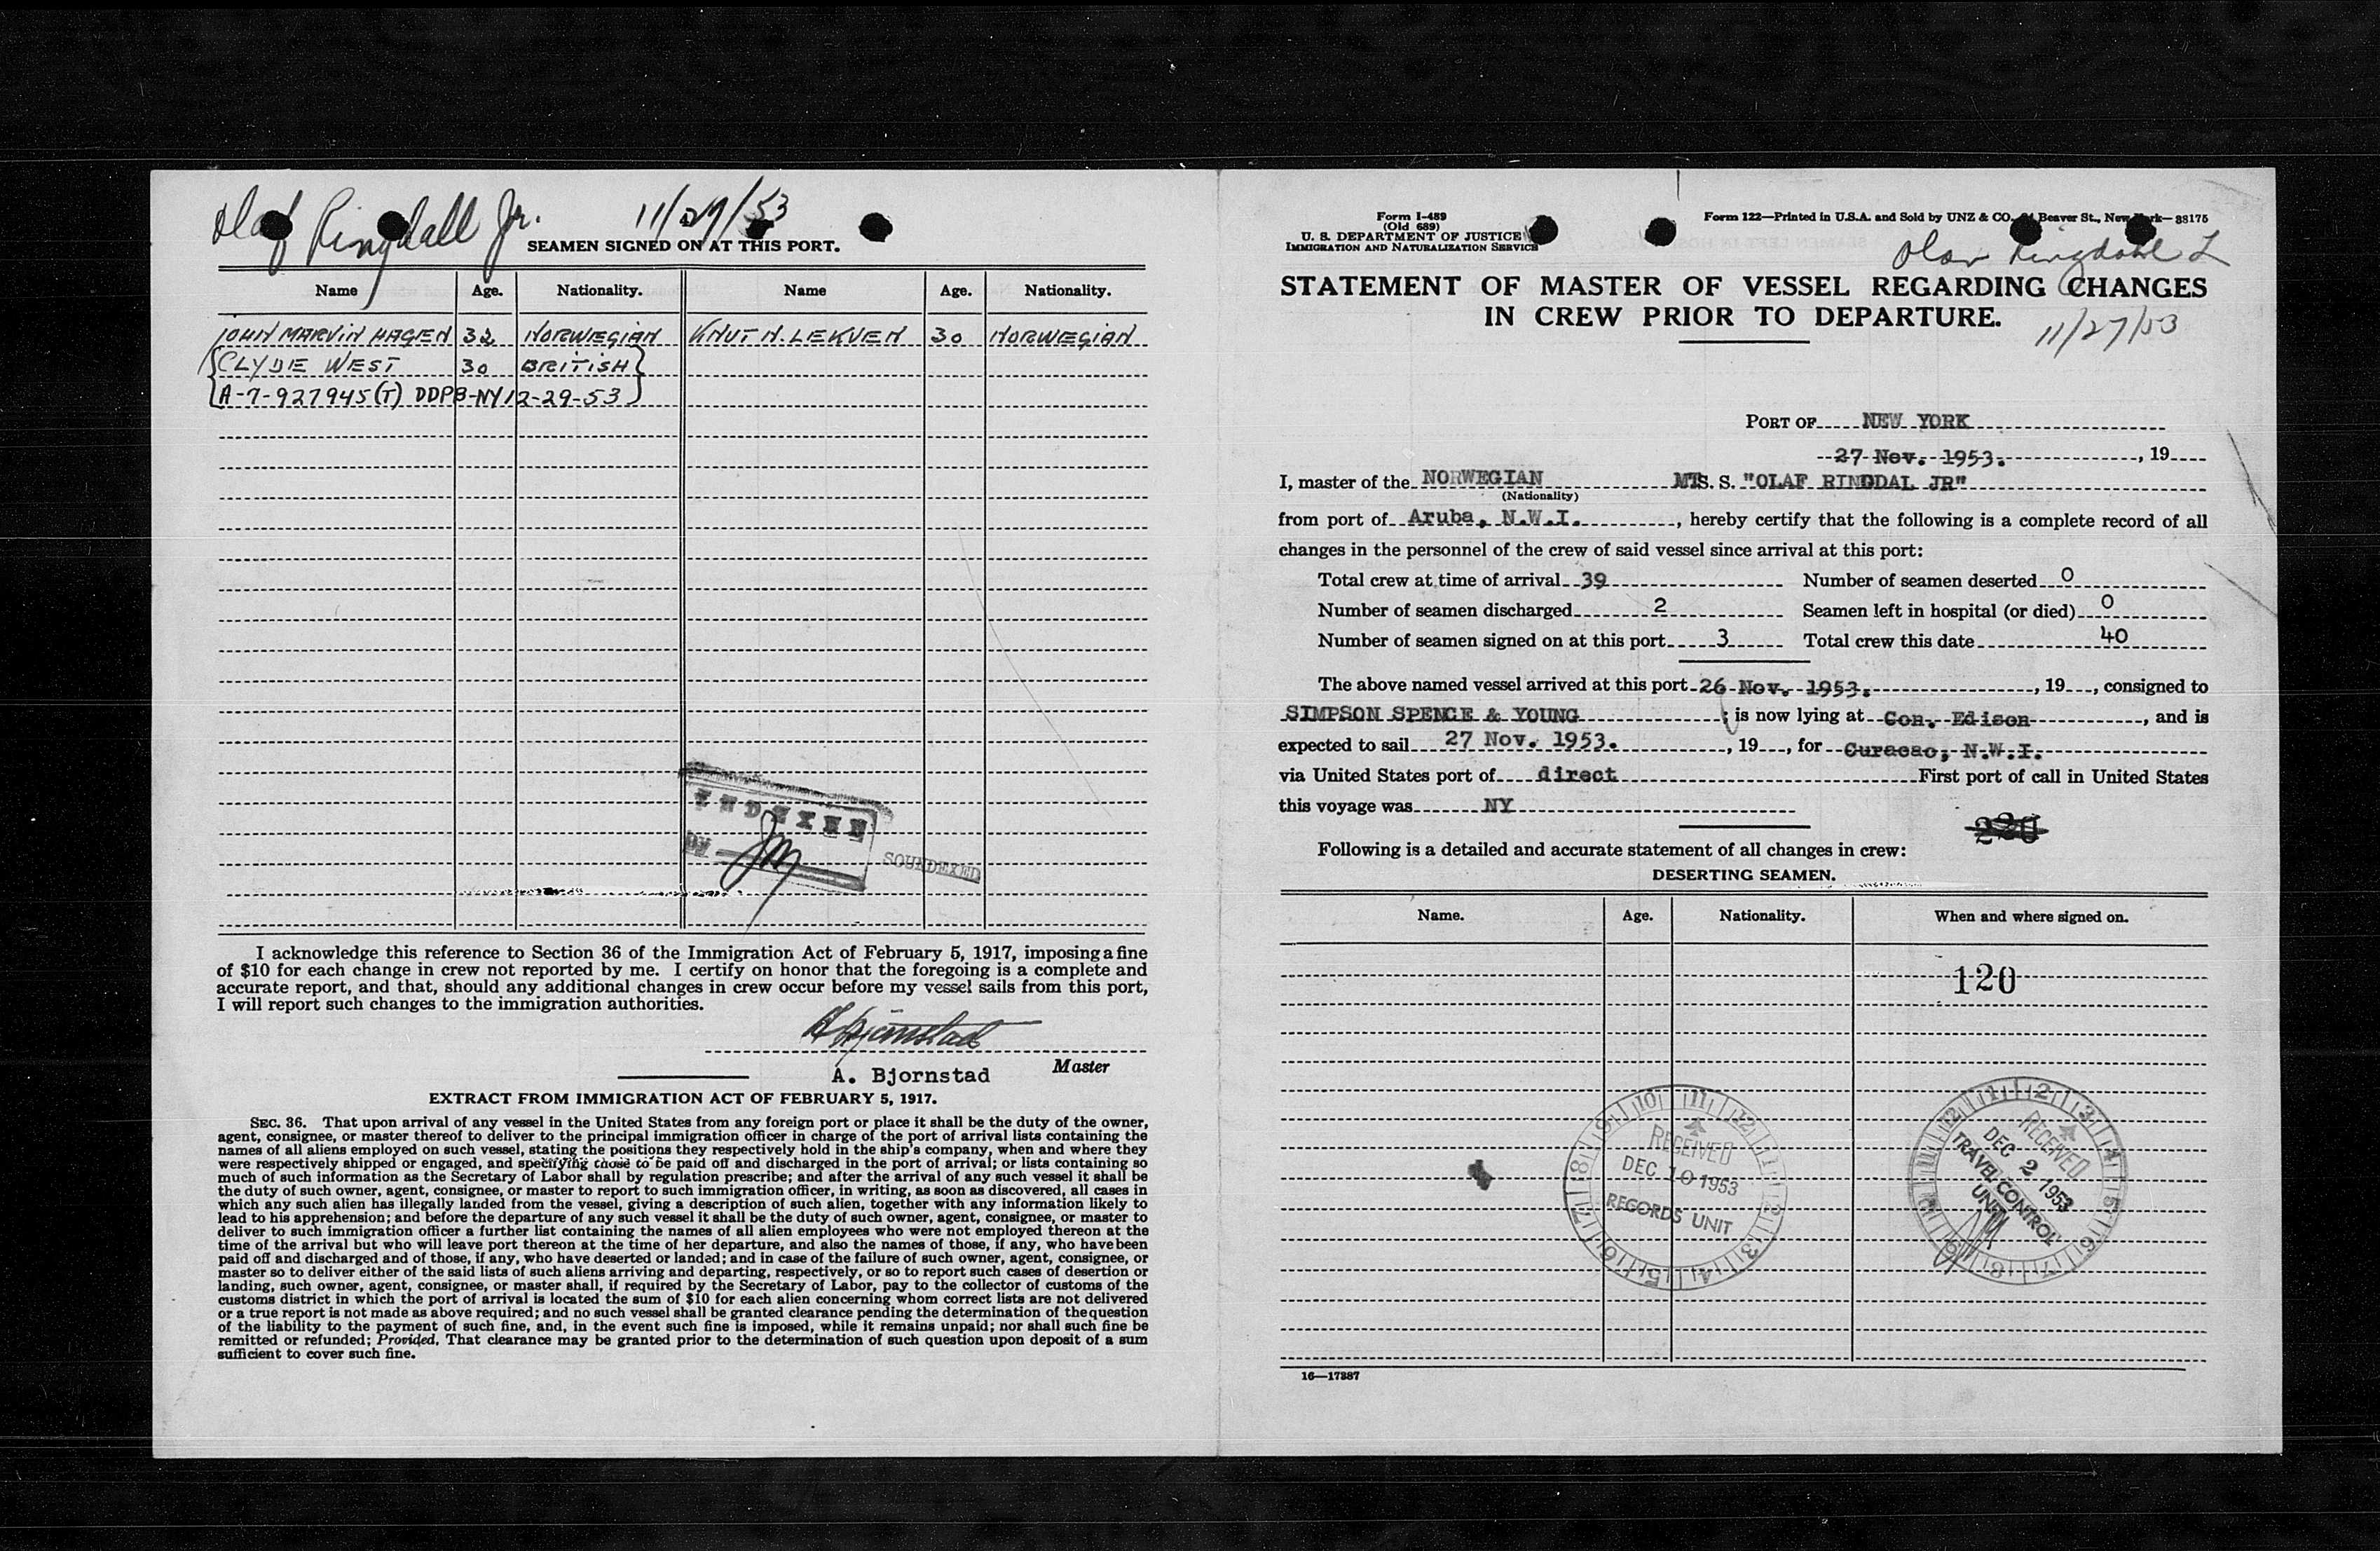 Olaf Ringdall Jr. 11/27/53
SEAMEN SIGNED ON AT THIS PORT.
Name Age. Nationality. Name Age. Nationality.
JOHN MARVIN HAGEN 32 NORWEGIAN KNUT N. LEKVEN 30 NORWEGIAN
CLYDE WEST 30 BRITISH
A-7-927945(T) DDPB-NY 12-29-53
INDEXED
BY JM
SOUNDEXED
I acknowledge this reference to Section 36 of the Immigration Act of February 5, 1917, imposing a fine
of $10 for each change in crew not reported by me. I certify on honor that the foregoing is a complete and
accurate report, and that, should any additional changes in crew occur before my vessel sails from this port,
I will report such changes to the immigration authorities.
A Bjornstad
A. Bjornstad Master
EXTRACT FROM IMMIGRATION ACT OF FEBRUARY 5, 1917.
SEC. 36. That upon arrival of any vessel in the United States from any foreign port or place it shall be the duty of the owner,
agent, consignee, or master thereof to deliver to the principal immigration officer in charge of the port of arrival lists containing the
names of all aliens employed on such vessel, stating the positions they respectively hold in the ship's company, when and where they
were respectively shipped or engaged, and specifying those to be paid off and discharged in the port of arrival; or lists containing so
much of such information as the Secretary of Labor shall by regulation prescribe; and after the arrival of any such vessel it shall be
the duty of such owner, agent, consignee, or master to report to such immigration officer, in writing, as soon as discovered, all cases in
which any such alien has illegally landed from the vessel, giving a description of such alien, together with any information likely to
lead to his apprehension; and before the departure of any such vessel it shall be the duty of such owner, agent, consignee, or master to
deliver to such immigration officer a further list containing the names of all alien employees who were not employed thereon at the
time of the arrival but who will leave port thereon at the time of her departure, and also the names of those, if any, who have been
paid off and discharged and of those, if any, who have deserted or landed; and in case of the failure of such owner, agent, consignee, or
master so to deliver either of the said lists of such aliens arriving and departing, respectively, or so to report such cases of desertion or
landing, such owner, agent, consignee, or master shall, if required by the Secretary of Labor, pay to the collector of customs of the
customs district in which the port of arrival is located the sum of $10 for each alien concerning whom correct lists are not delivered
or a true report is not made as above required; and no such vessel shall be granted clearance pending the determination of the question
of the liability to the payment of such fine, and, in the event such fine is imposed, while it remains unpaid; nor shall such fine be
remitted or refunded; Provided, That clearance may be granted prior to the determination of such question upon deposit of a sum
sufficient to cover such fine.
Form I-489
(Old 689)
U. S. DEPARTMENT OF JUSTICE
IMMIGRATION AND NATURALIZATION SERVICE
Form 122—Printed in U.S.A. and Sold by UNZ & CO. Beaver St., New York—38175
Olav Ringdahl
STATEMENT OF MASTER OF VESSEL REGARDING CHANGES
IN CREW PRIOR TO DEPARTURE.
11/27/53
PORT OF NEW YORK
27 Nov. 1953. , 19
I, master of the NORWEGIAN MTS. S. "OLAF RINGDAL JR"
(Nationality)
from port of Aruba, N.W.I. , hereby certify that the following is a complete record of all
changes in the personnel of the crew of said vessel since arrival at this port:
Total crew at time of arrival 39 Number of seamen deserted 0
Number of seamen discharged 2 Seamen left in hospital (or died) 0
Number of seamen signed on at this port 3 Total crew this date 40
The above named vessel arrived at this port 26 Nov. 1953. , 19 , consigned to
SIMPSON SPENCE & YOUNG ; is now lying at Con. Edison , and is
expected to sail 27 Nov. 1953. , 19 , for Curacao, N.W.I.
via United States port of direct First port of call in United States
this voyage was NY
220
Following is a detailed and accurate statement of all changes in crew:
DESERTING SEAMEN.
Name. Age. Nationality. When and where signed on.
120
RECEIVED
DEC 10 1953
RECORDS UNIT
RECEIVED
DEC 2 1953
TRAVEL CONTROL
UNIT
16—17387